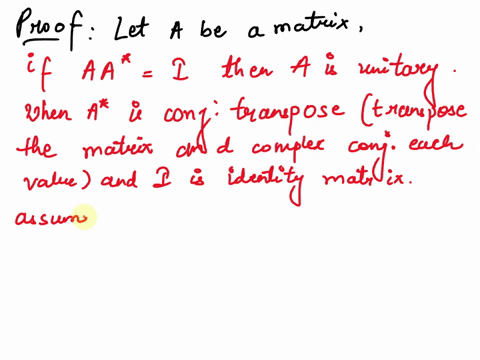 Proof : Let A be a matrix,
if AA* = I then A is unitary.
when A* is conj: transpose (transpose
the matrix and complex conj. each
value) and I is identity matrix.
assum